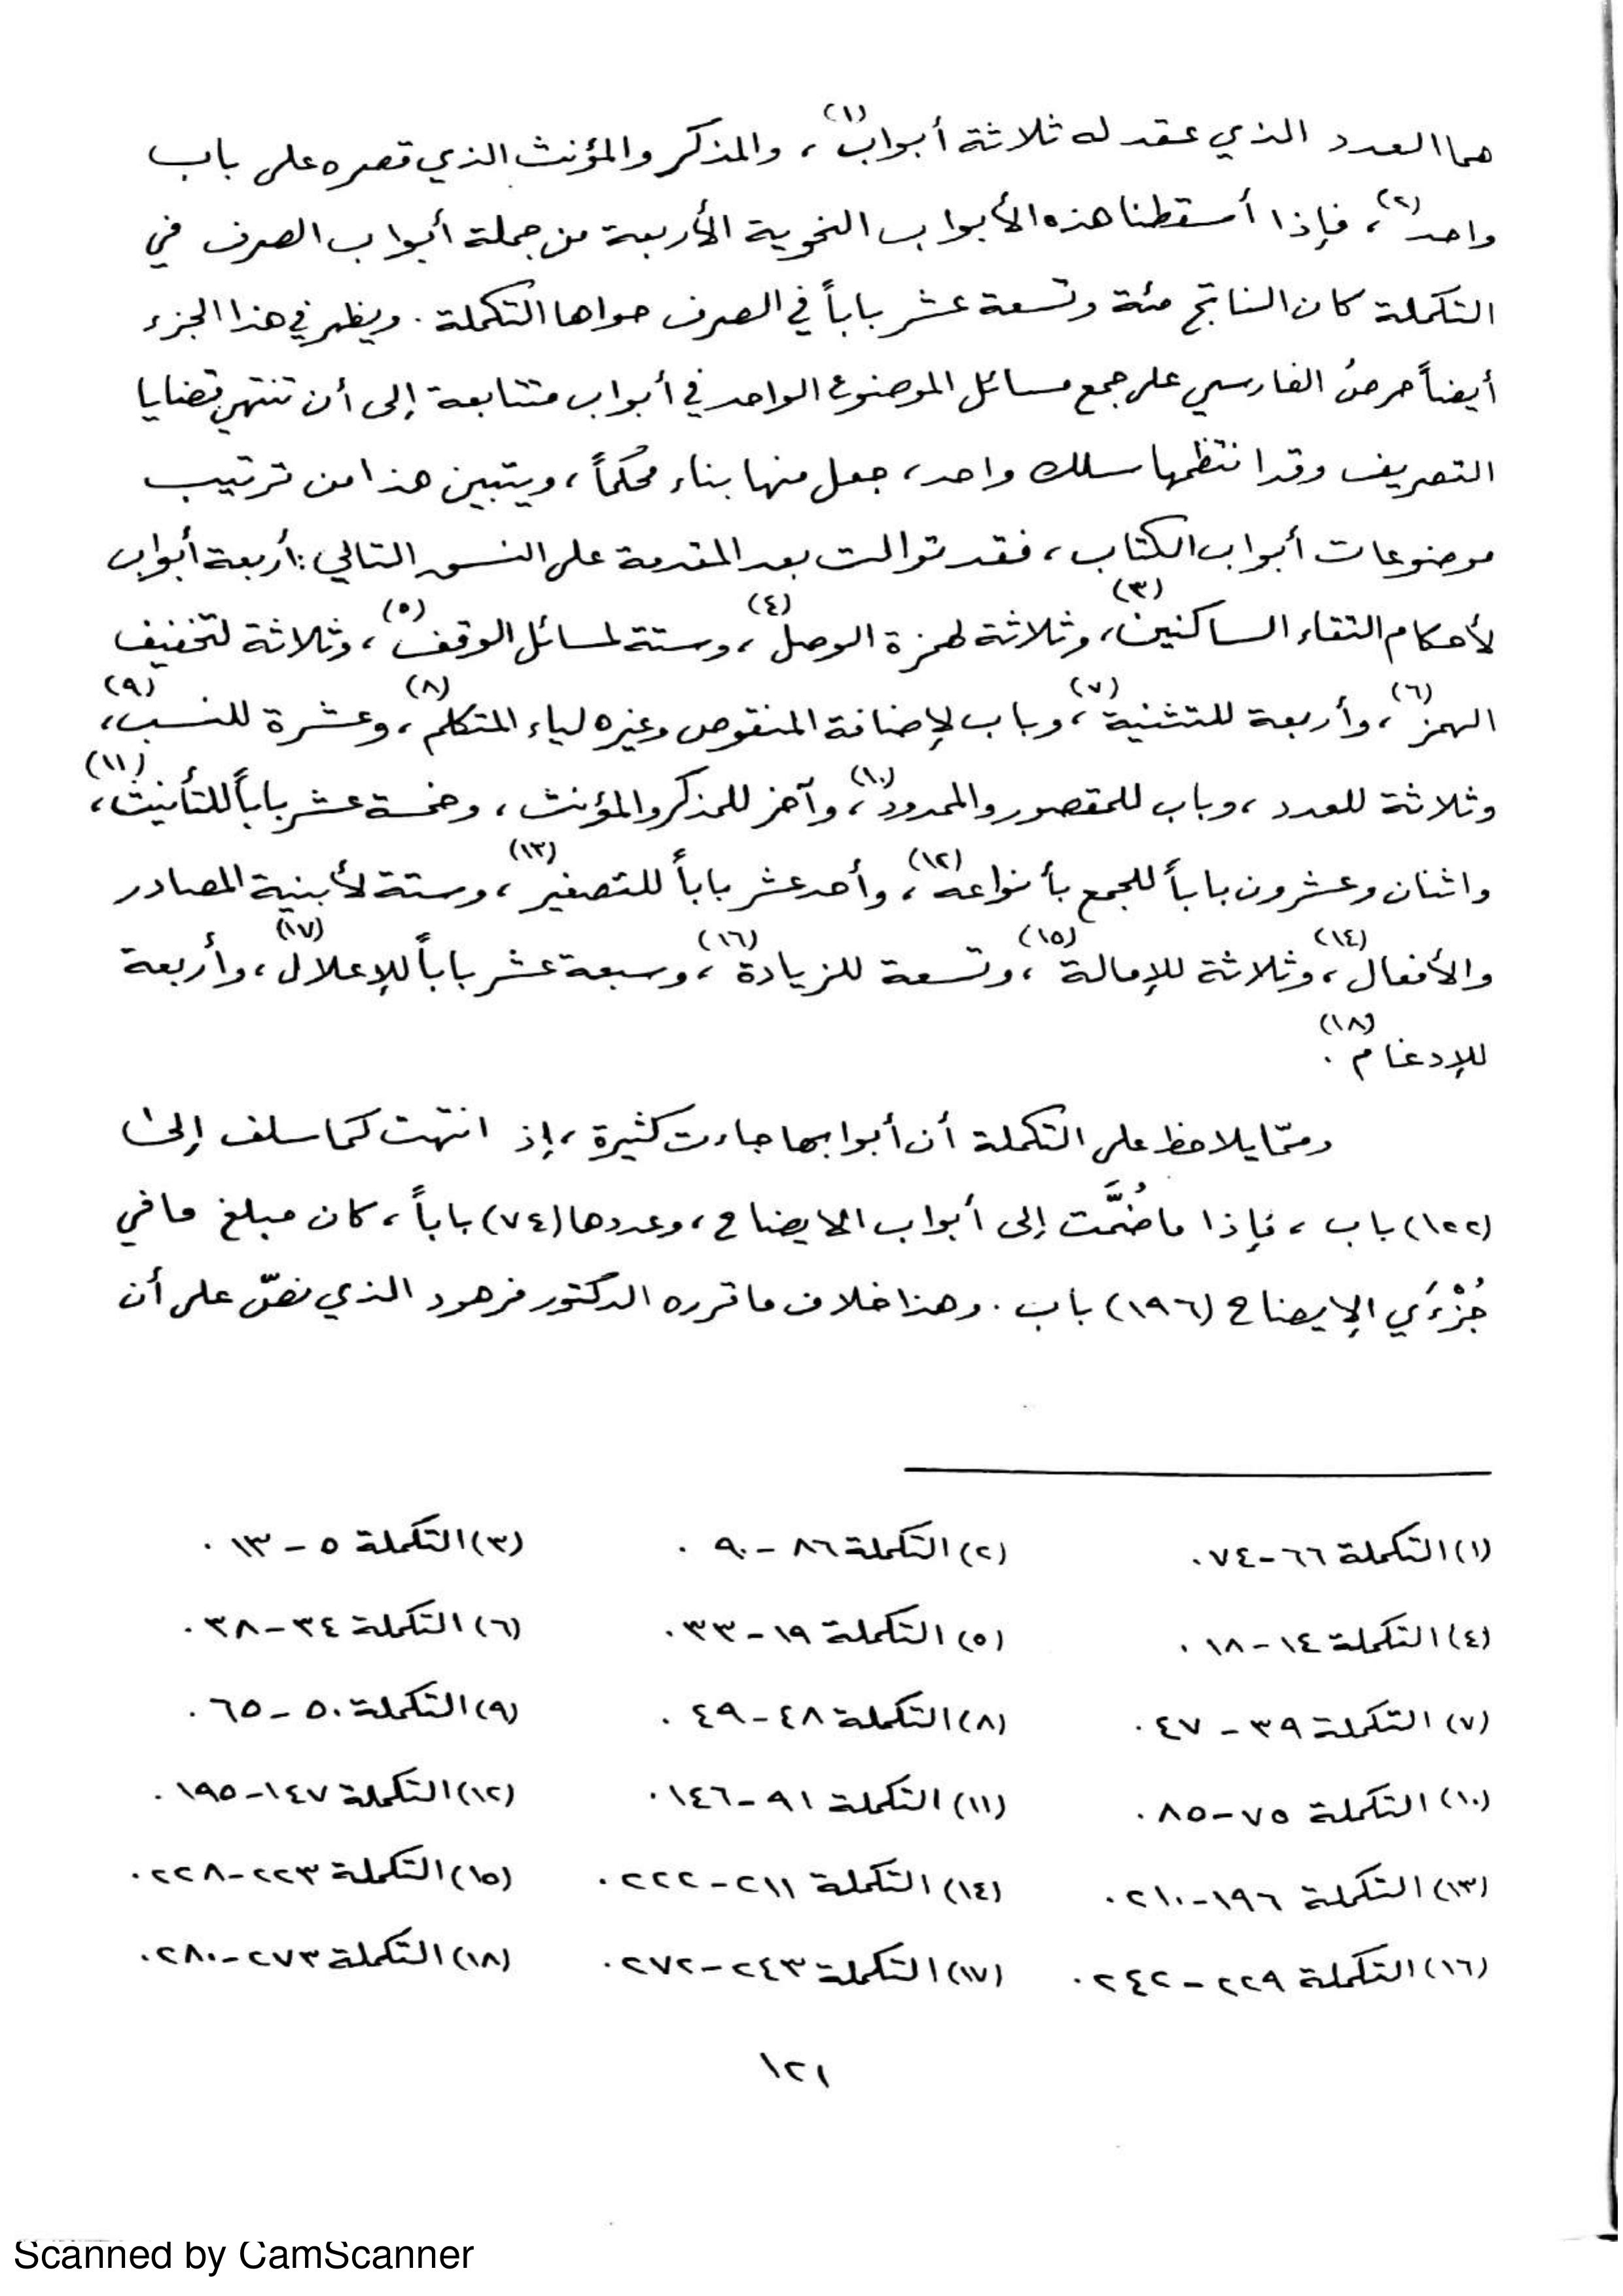 هما العدد الذي عقد له ثلاثة أبواب(١)، والمذكر والمؤنث الذي قصره على باب
واحد(٢)، فإذا أسقطنا هذه الأبواب النحوية الأربعة من جملة أبواب الصرف في
التكملة كان الناتج مئة وتسعة عشر باباً في الصرف حواها التكملة . ويظهر في هذا الجزء
أيضاً حرصُ الفارسي على جمع مسائل الموضوع الواحد في أبواب متتابعة إلى أن تنتهي قضايا
التصريف وقد انتظمها سلك واحد، جعل منها بناء محُكماً، ويتبين هذا من ترتيب
موضوعات أبواب الكتاب، فقد توالت بعد المقدمة على النسق التالي : أربعة أبواب
لأحكام التقاء الساكنين(٣)، وثلاثة لهمزة الوصل(٤)، وستة لمسائل الوقف(٥)، وثلاثة لتخفيف
الهمز(٦)، وأربعة للتثنية(٧)، وباب لإضافة المنقوص وغيره لياء المتكلم(٨)، وعشرة للنسب(٩)،
وثلاثة للعدد، وباب للمقصور والممدود(١٠)، وآخر للمذكر والمؤنث، وخمسة عشر باباً للتأنيث(١١)،
واثنان وعشرون باباً للجمع بأنواعه(١٢)، وأحد عشر باباً للتصغير(١٣)، وستة لأبنية المصادر
والأفعال(١٤)، وثلاثة للإمالة(١٥)، وتسعة للزيادة(١٦)، وسبعة عشر باباً للإعلال(١٧)، وأربعة
للإدغام(١٨) .
وممّا يلاحظ على التكملة أن أبوابها جاءت كثيرة، إذ انتهت كما سلف إلى
(١٢٢) باب، فإذا ما ضُمَّت إلى أبواب الايضاح، وعددها (٧٤) باباً، كان مبلغ ما في
جُزْءَي الإيضاح (١٩٦) باب . وهذا خلاف ما قرره الدكتور فرهود الذي نصّ على أن
(١) التكملة ٦٦-٧٤ . (٢) التكملة ٨٦-٩٠ . (٣) التكملة ٥-١٣ .
(٤) التكملة ١٤-١٨ . (٥) التكملة ١٩-٣٣ . (٦) التكملة ٣٤-٣٨ .
(٧) التكملة ٣٩-٤٧ . (٨) التكملة ٤٨-٤٩ . (٩) التكملة ٥٠-٦٥ .
(١٠) التكملة ٧٥-٨٥ . (١١) التكملة ٩١-١٤٦ . (١٢) التكملة ١٤٧-١٩٥ .
(١٣) التكملة ١٩٦-٢١٠ . (١٤) التكملة ٢١١-٢٢٢ . (١٥) التكملة ٢٢٣-٢٢٨ .
(١٦) التكملة ٢٢٩-٢٤٢ . (١٧) التكملة ٢٤٣-٢٧٢ . (١٨) التكملة ٢٧٣-٢٨٠ .
١٢١
Scanned by CamScanner